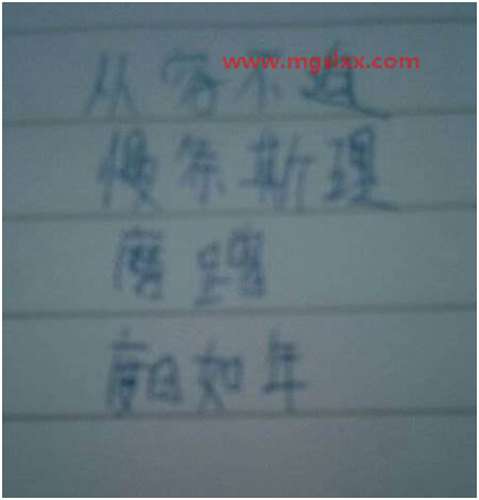 www.mgslxx.com
从容不迫
慢条斯理
磨蹭
度日如年